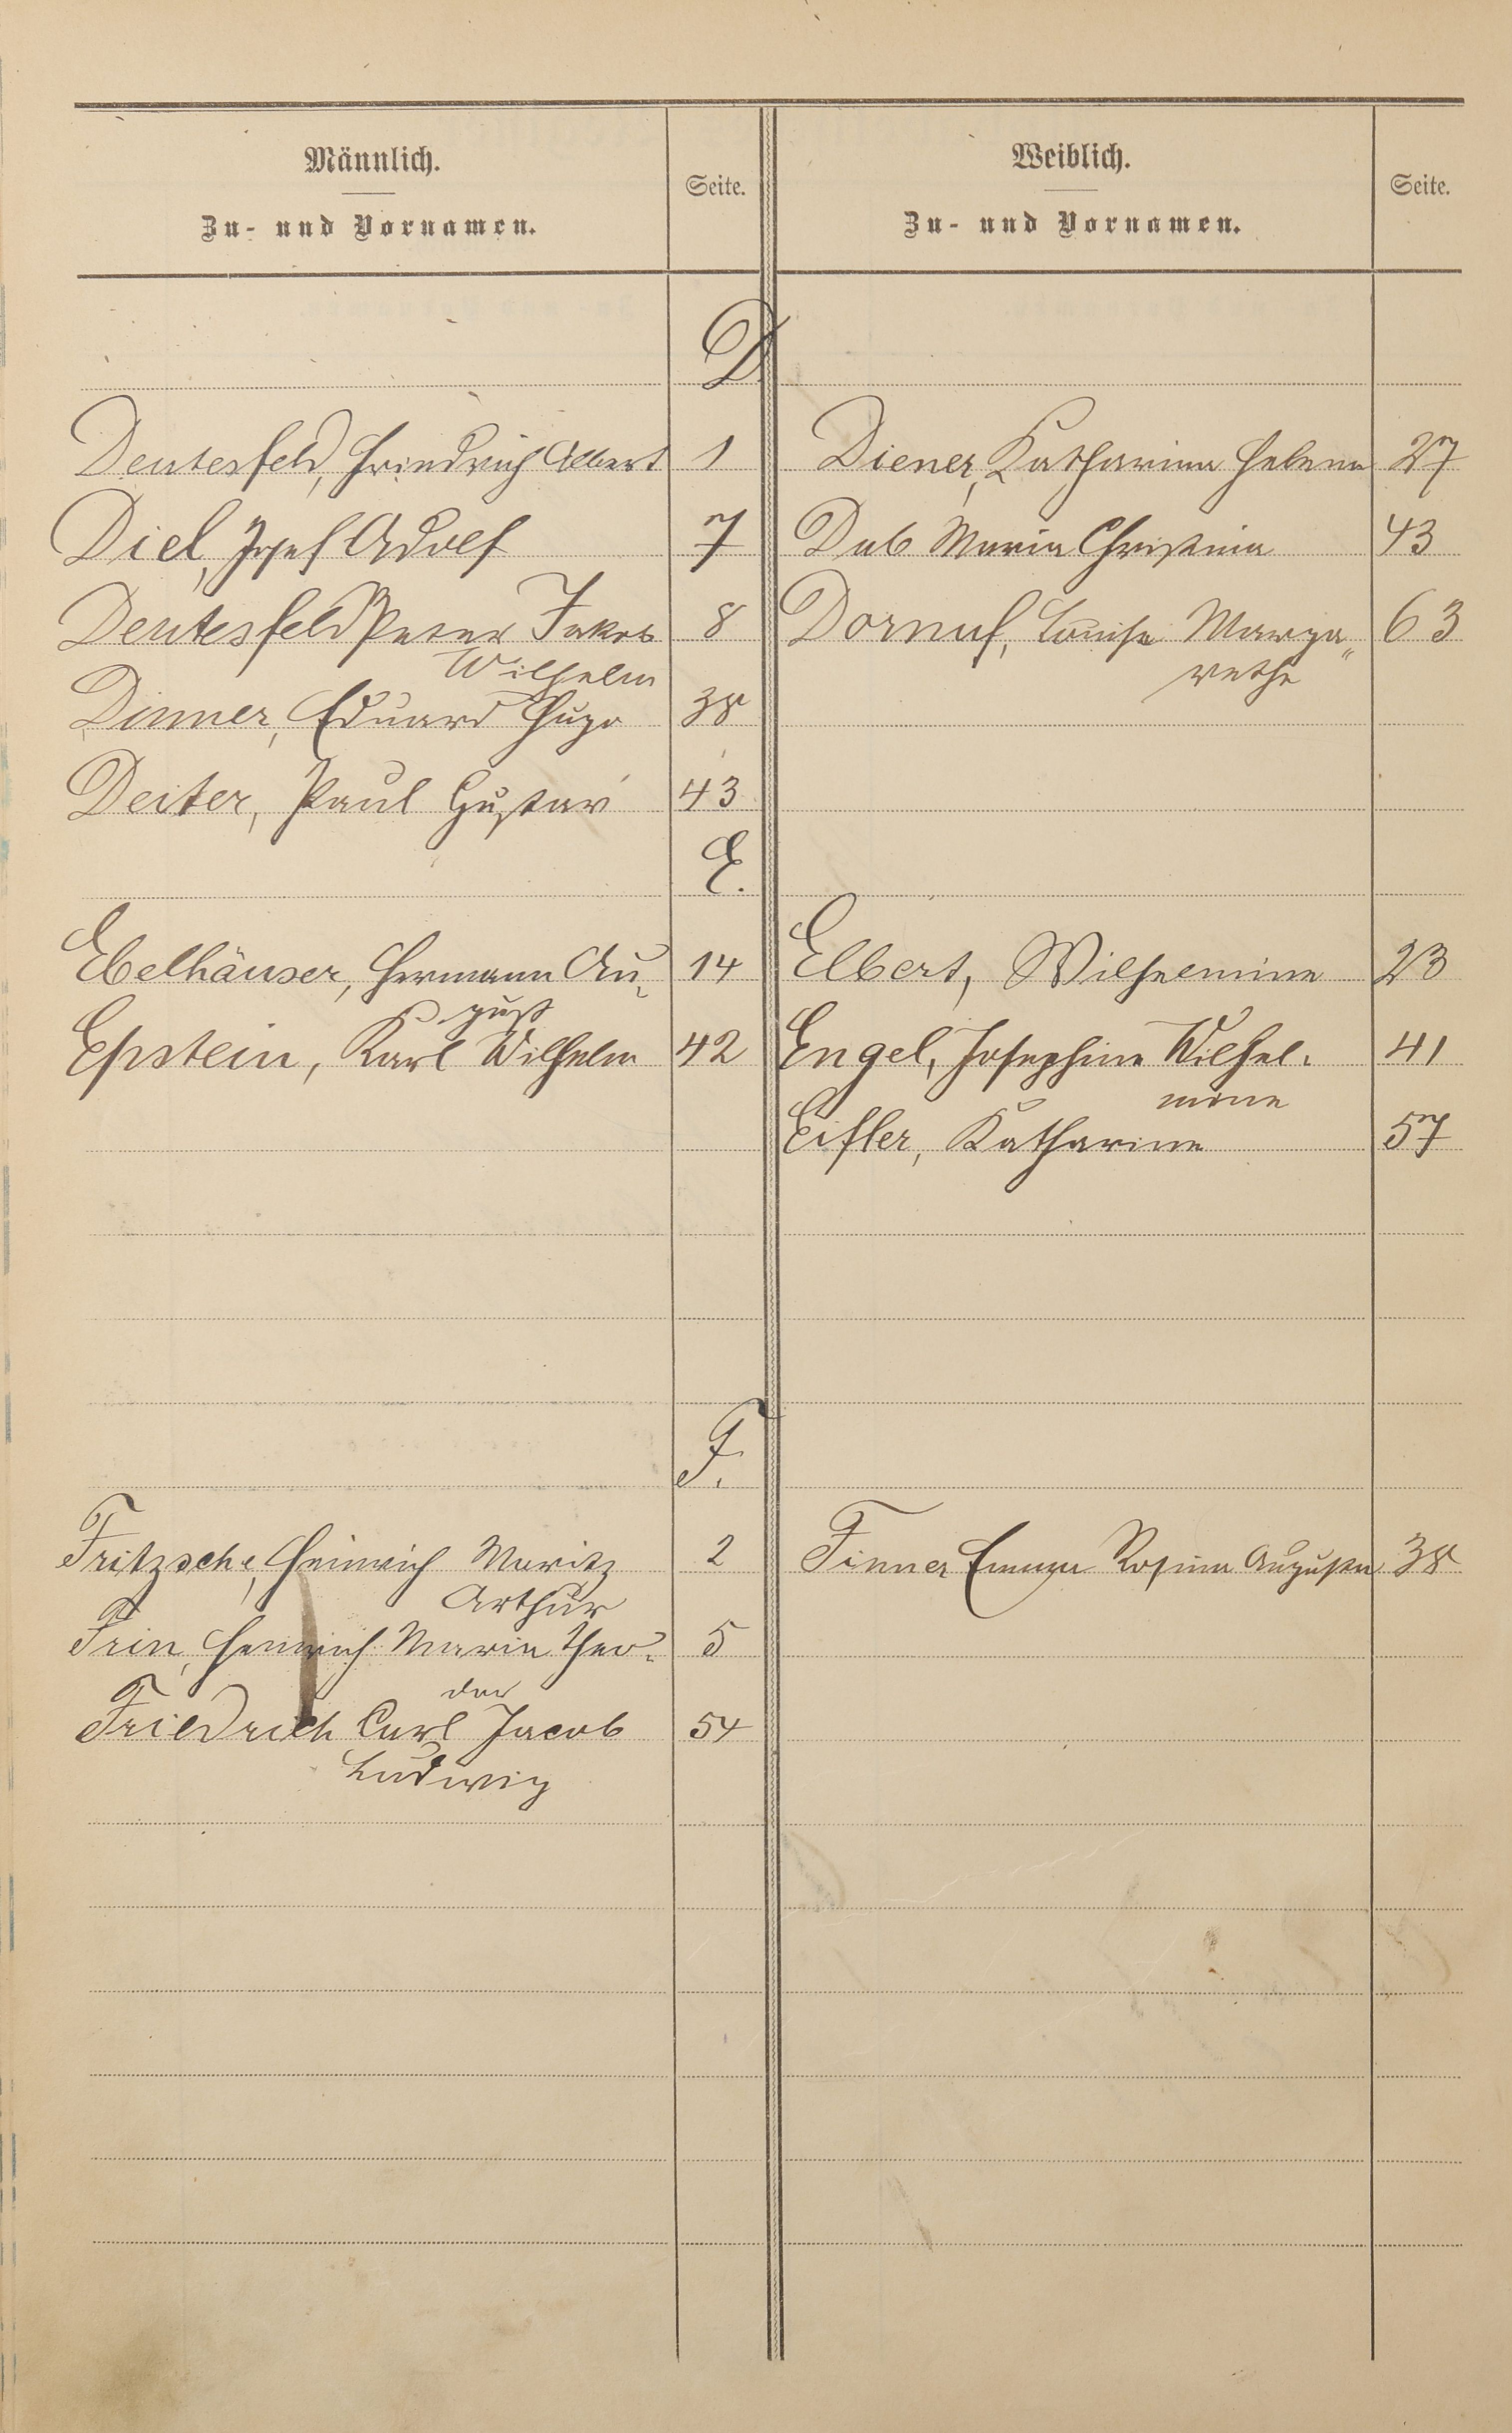 Männlich.
Zu- und Vornamen.
Seite.
Weiblich.
Zu- und Vornamen.
Seite.
D
Deutesfeld, Friedrich Albert 1 Diener, Katharina Helena 27
Diel, Josef Adolf 7 Dab Maria Christina 43
Deutesfeld Peter Jakob 8 Dornuf, Louise Marga„ 63
Wilhelm rethe
Dinner, Eduard Hugo 38
Deiter, Paul Gustav 43
E.
Ebelhäuser, Hermann Au- 14 Elbert, Wilhelmine 23
gust
Epstein, Karl Wilhelm 42 Engel, Josephine Wilhel- 41
mine
Eifler, Katharine 57
F.
Fritzsche, Heinrich Moritz 2 Finner Emma Rosina Augusta 38
Arthur
Frin, Heinrich Maria Theo- 5
dor
Friedrich Carl Jacob 54
Ludwig